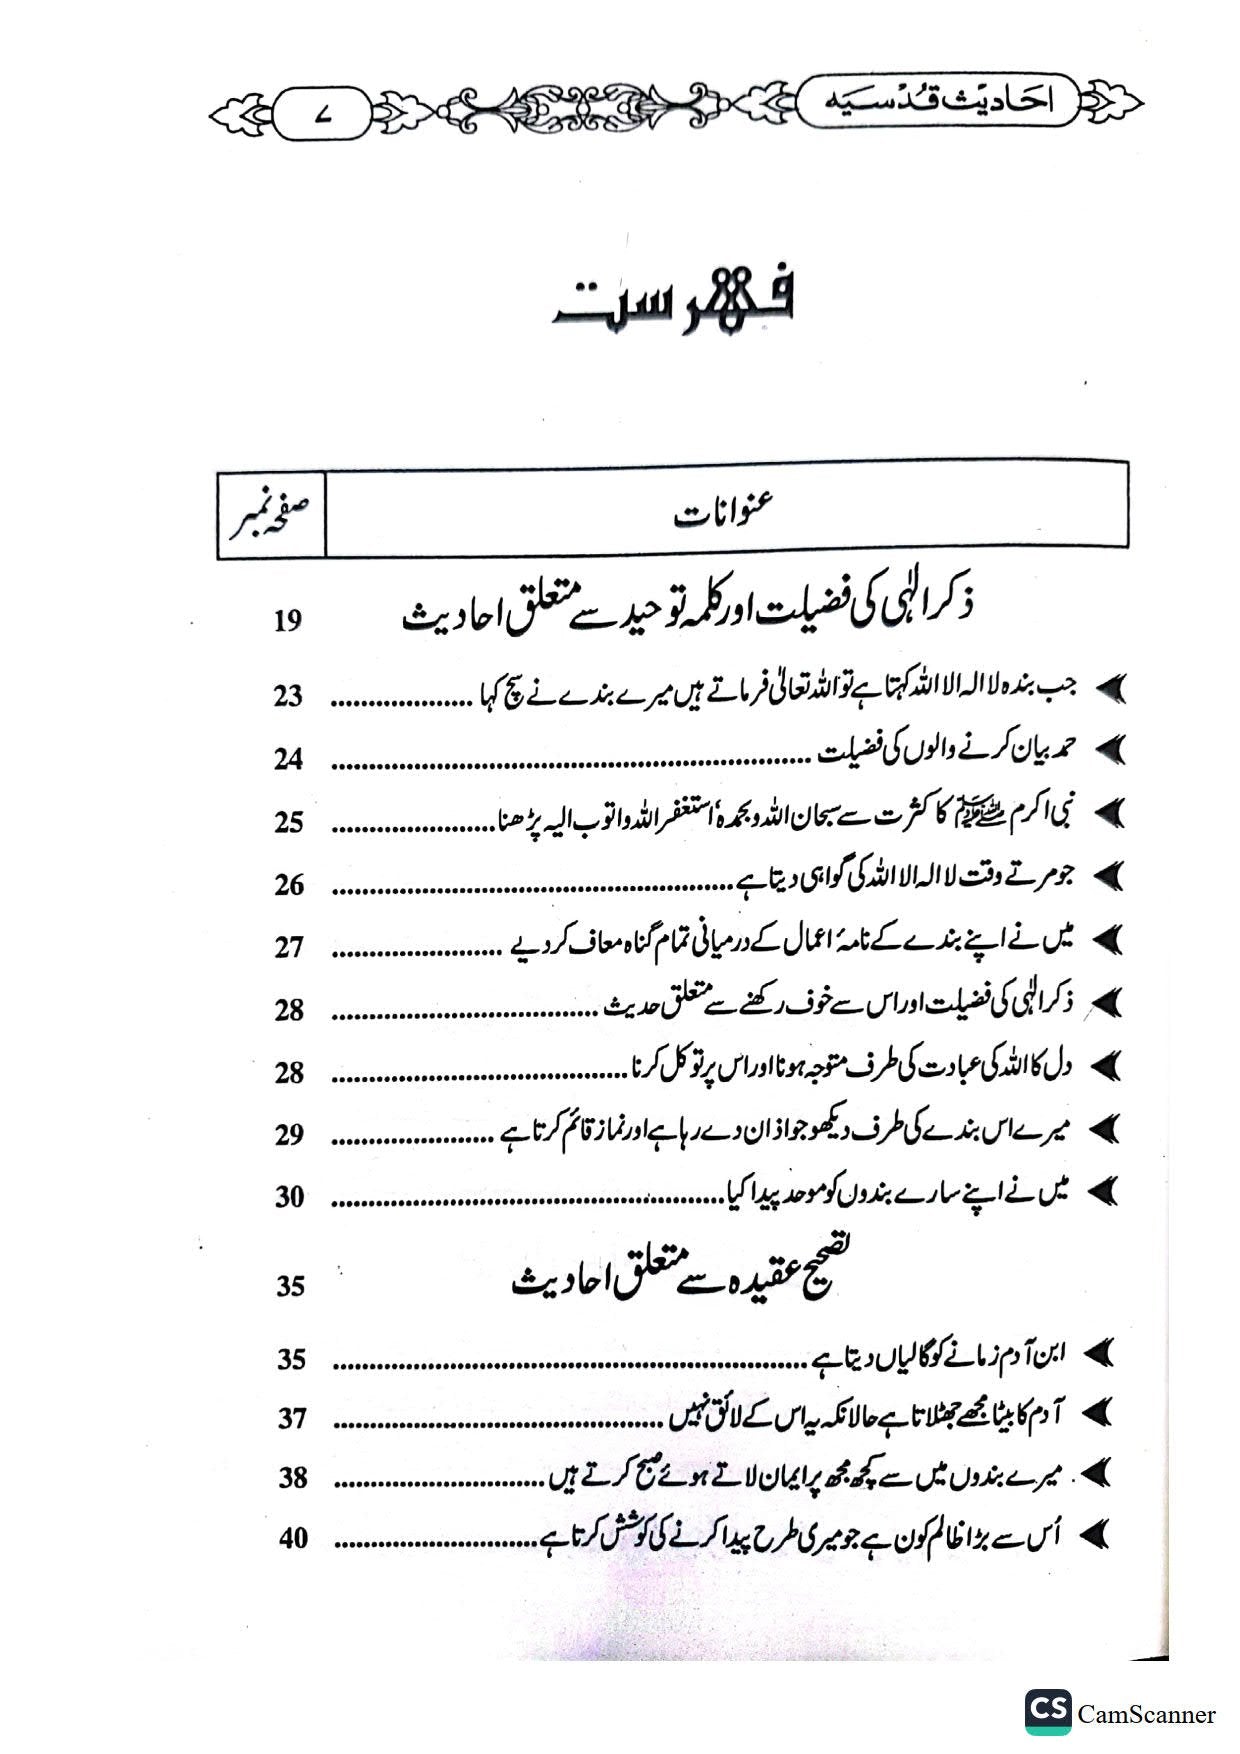 احادیث قُدسیہ ۷
فہرست
عنوانات صفحہ نمبر
ذکر الٰہی کی فضیلت اور کلمہ توحید سے متعلق احادیث 19
جب بندہ لا الہ الا اللہ کہتا ہے تو اللہ تعالیٰ فرماتے ہیں میرے بندے نے سچ کہا .................. 23
حمد بیان کرنے والوں کی فضیلت .................. 24
نبی اکرم ﷺ کا کثرت سے سبحان اللہ وبحمدہٗ استغفر اللہ واتوب الیہ پڑھنا .................. 25
جو مرتے وقت لا الہ الا اللہ کی گواہی دیتا ہے .................. 26
میں نے اپنے بندے کے نامۂ اعمال کے درمیانی تمام گناہ معاف کر دیے .................. 27
ذکر الٰہی کی فضیلت اور اس سے خوف رکھنے سے متعلق حدیث .................. 28
دل کا اللہ کی عبادت کی طرف متوجہ ہونا اور اس پر توکل کرنا .................. 28
میرے اس بندے کی طرف دیکھو جو اذان دے رہا ہے اور نماز قائم کرتا ہے .................. 29
میں نے اپنے سارے بندوں کو موحد پیدا کیا .................. 30
تصحیح عقیدہ سے متعلق احادیث 35
ابن آدم زمانے کو گالیاں دیتا ہے .................. 35
آدم کا بیٹا مجھے جھٹلاتا ہے حالانکہ یہ اس کے لائق نہیں .................. 37
میرے بندوں میں سے کچھ مجھ پر ایمان لاتے ہوئے صبح کرتے ہیں .................. 38
اُس سے بڑا ظالم کون ہے جو میری طرح پیدا کرنے کی کوشش کرتا ہے .................. 40
CS CamScanner